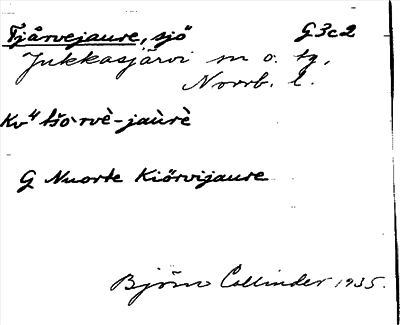 Tjårvejaure, sjö G3c2
Jukkasjärvi sn o. tg,
Norrb. l.
Kv" tšo·rvè-jaùrè
G Nuorte Kiörvijaure
Björn Collinder 1935.